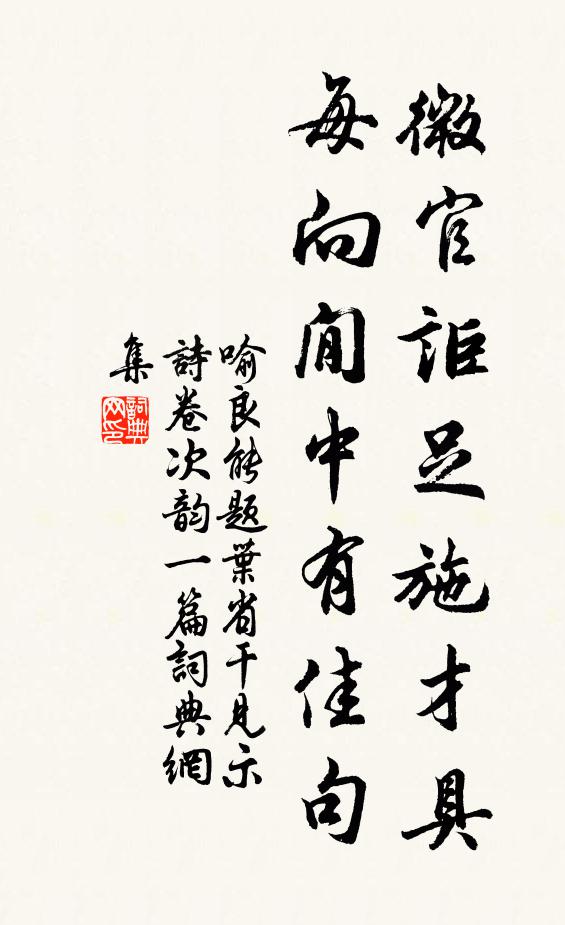 微官詎足施才具
每向閒中有佳句
喻良能題葉省干見示
詩卷次韵一篇詞典網
集
詞典
网印